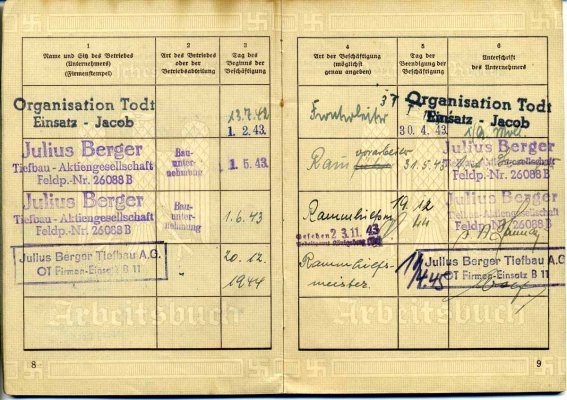 1
Name und Sitz des Betriebes
(Unternehmers)
(Firmenstempel)
2
Art des Betriebes
oder der
Betriebsabteilung
3
Tag des
Beginns der
Beschäftigung
Organisation Todt
Einsatz - Jacob
13.7.42
1. 2. 43.
Julius Berger
Tiefbau - Aktiengesellschaft
Feldp.-Nr. 26088 B
Bau-
unter-
nehmung
1. 5. 43.
Julius Berger
Tiefbau - Aktiengesellschaft
Feldp.-Nr. 26088 B
Bau-
unter-
nehmung
1.6.43
Julius Berger Tiefbau A.G.
OT Firmen-Einsatz B 11
20. 12.
1944
Arbeitsbuch
8
4
Art der Beschäftigung
(möglichst
genau angeben)
5
Tag der
Beendigung der
Beschäftigung
6
Unterschrift
des Unternehmers
30. 4. 43.
Organisation Todt
Einsatz - Jacob
vorarbeiter
31.5.43
Julius Berger
Tiefbau - Aktiengesellschaft
Feldp.-Nr. 26088 B
19.12
44
Gesehen 2 3. 11. 43
Julius Berger
Tiefbau - Aktiengesellschaft
Feldp.-Nr. 26088 B
Rammhilfs-
meister.
4.45
Julius Berger Tiefbau A.G.
OT Firmen-Einsatz B 11
Arbeitsbuch
9